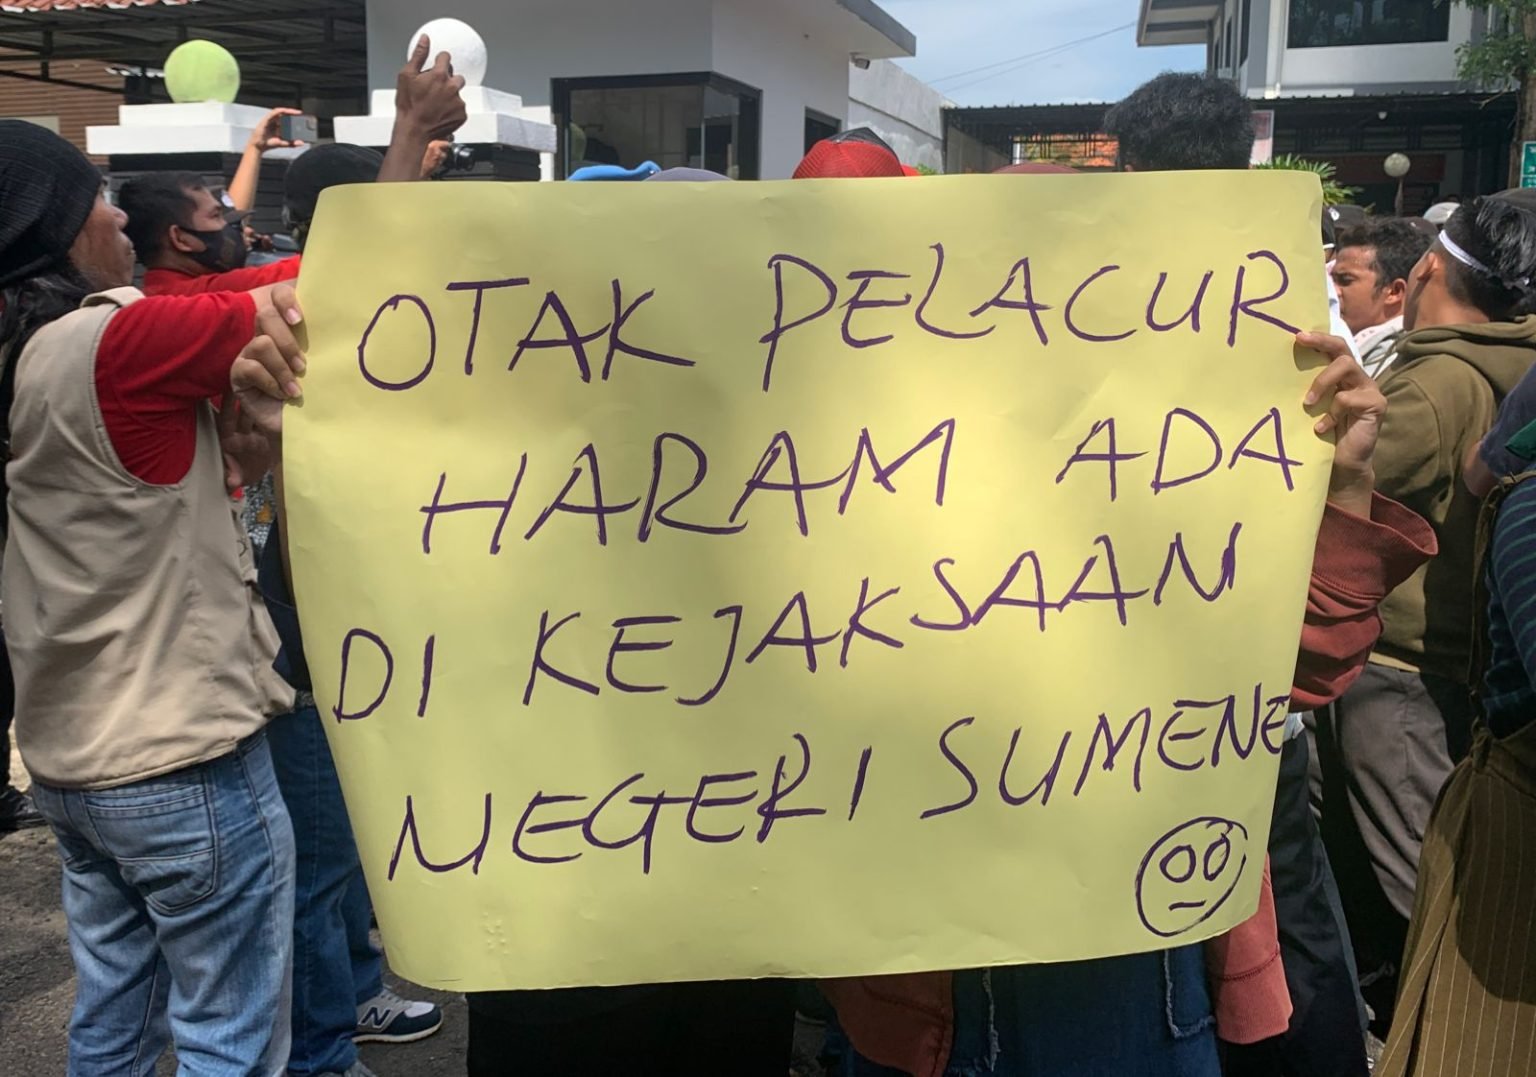 OTAK PELACUR
HARAM ADA
DI KEJAKSAAN
NEGERI SUMENE
N